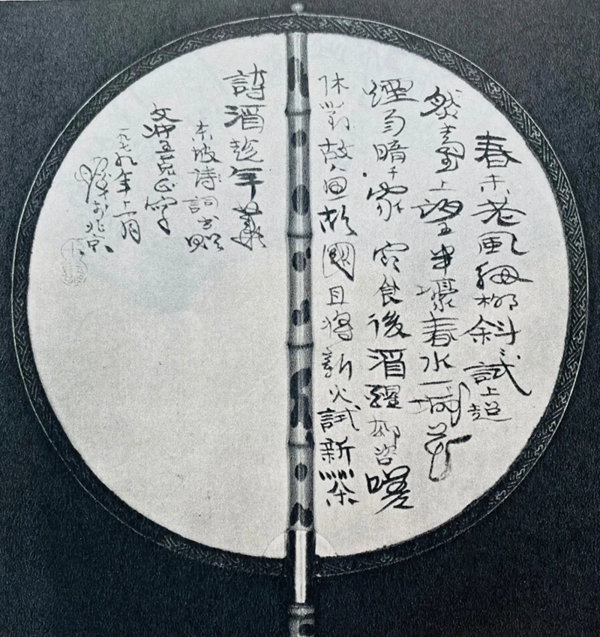 春未老風細柳斜試上超
然臺上望半壕春水一城花
煙雨暗千家寒食後酒醒却咨嗟
休對故人思故國且將新火試新茶
詩酒趁年華
東坡詩詞書
文
年十一月
北京